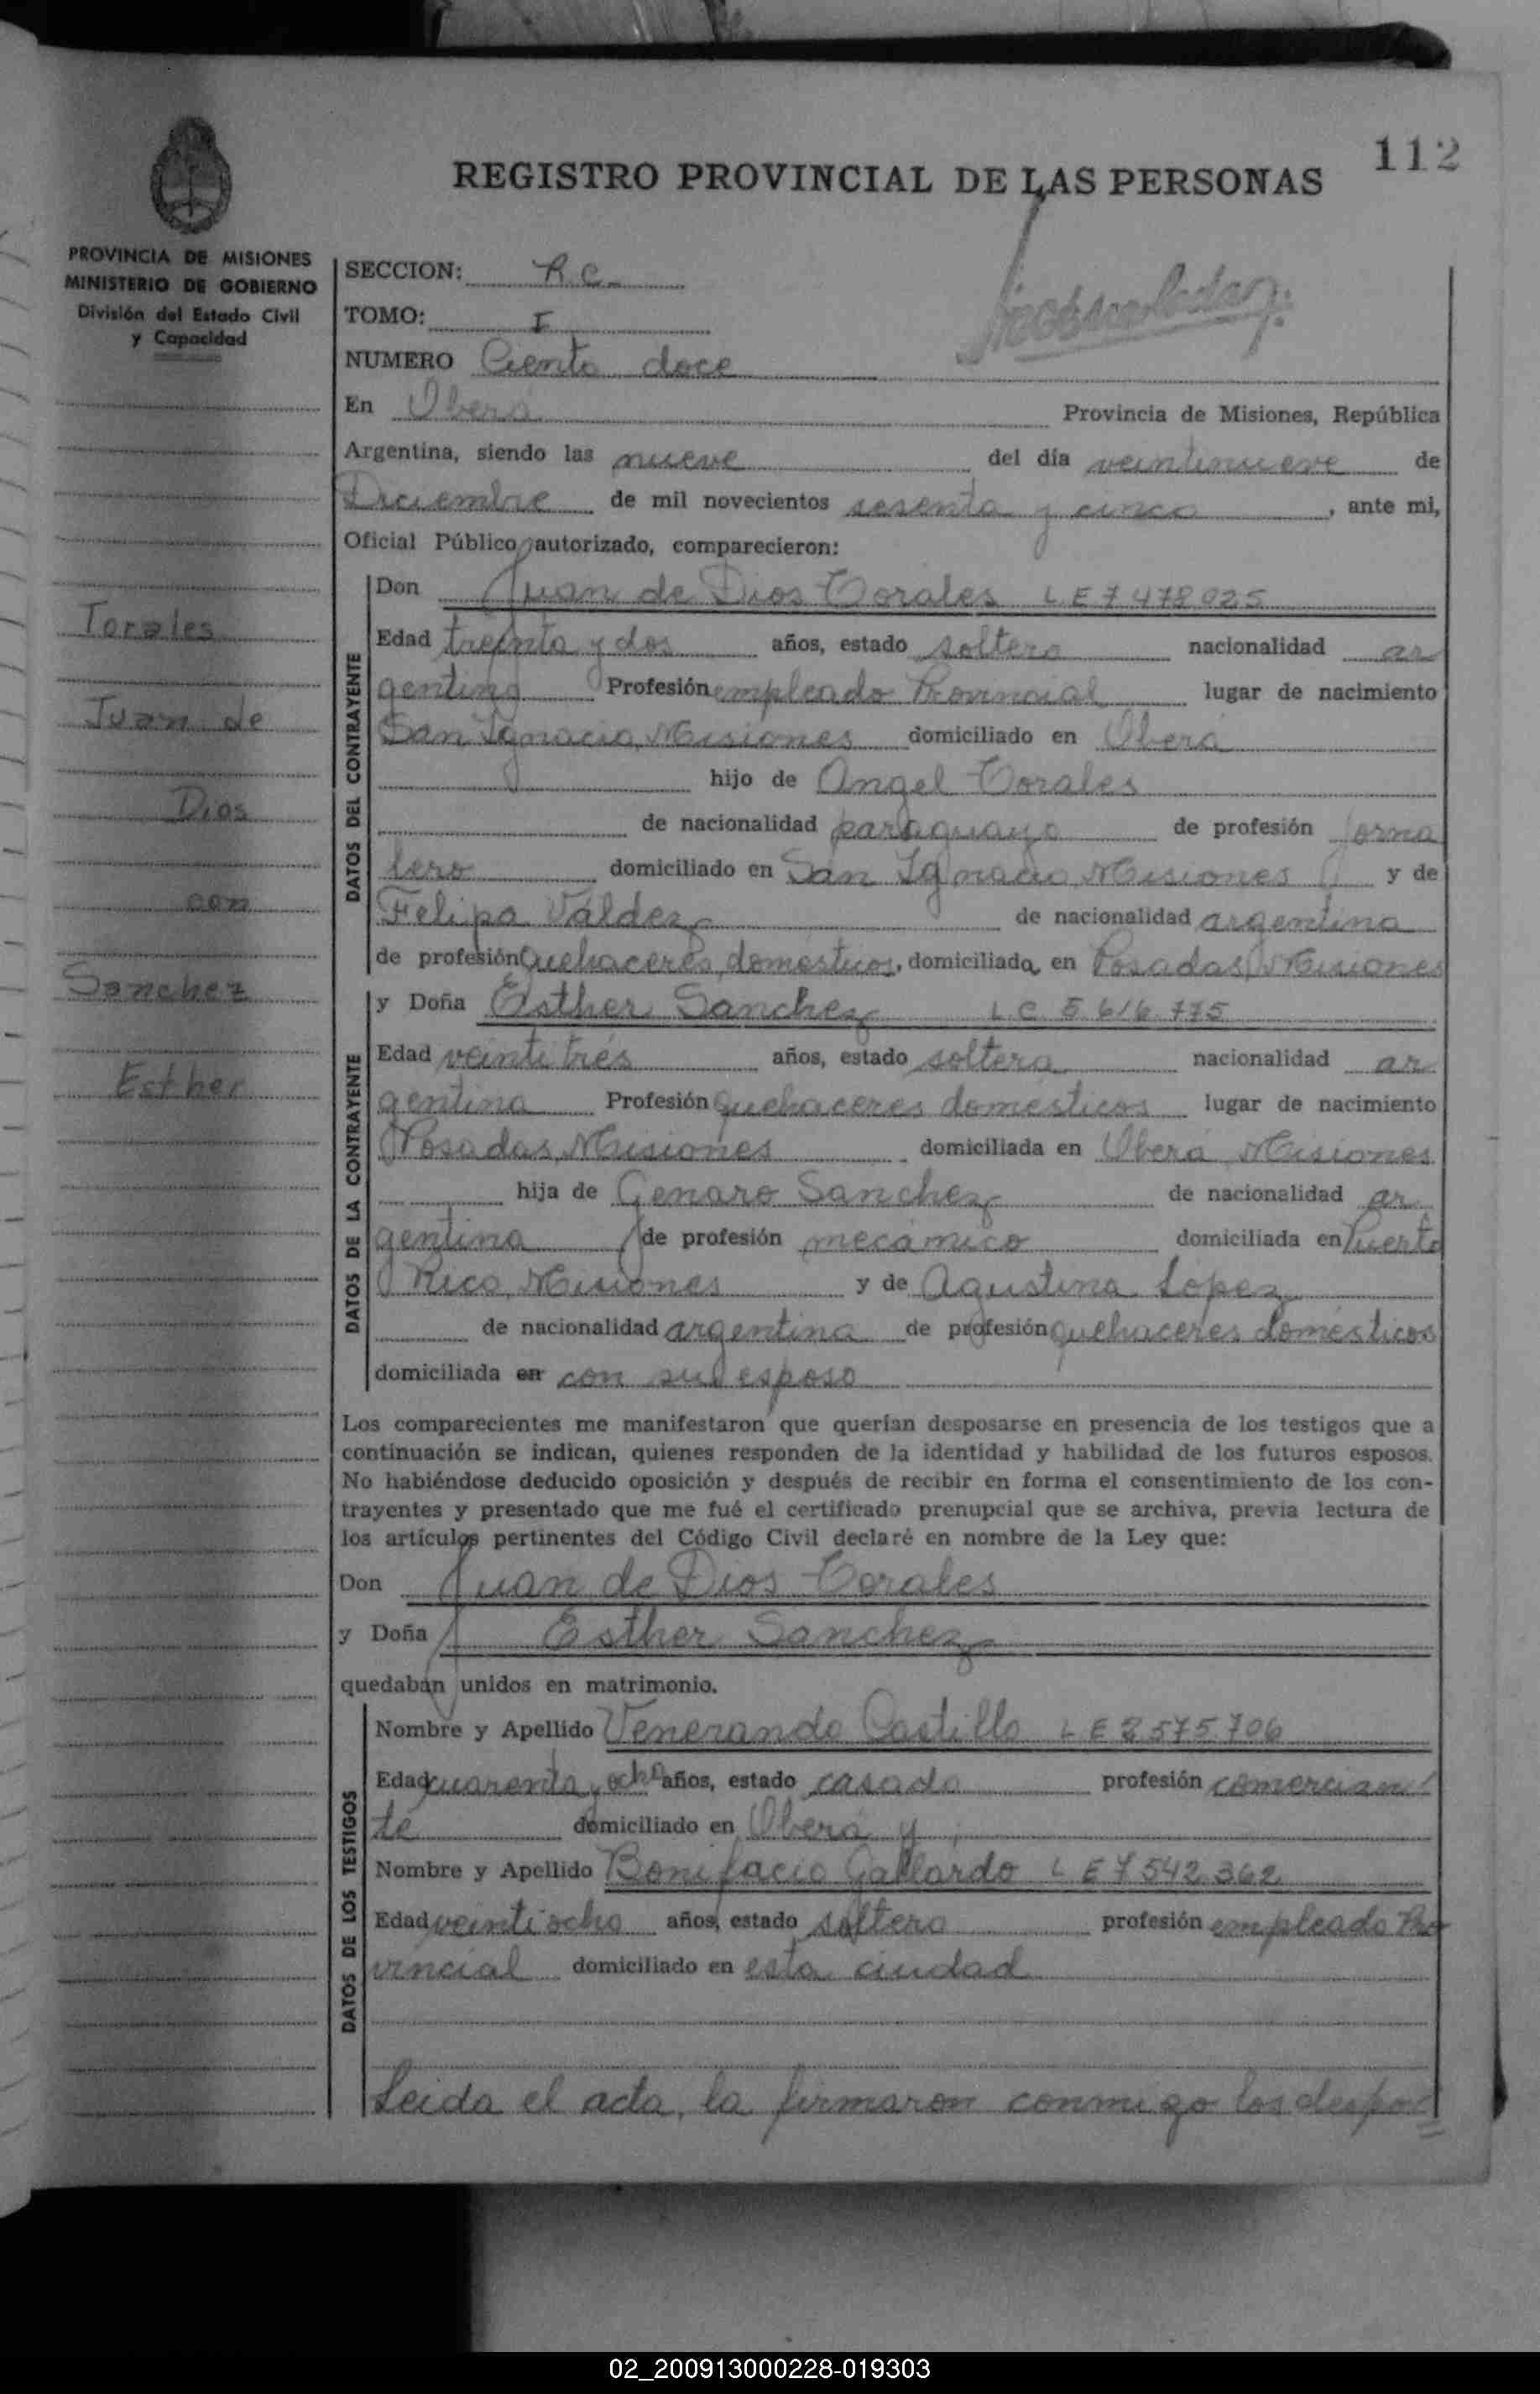 112
REGISTRO PROVINCIAL DE LAS PERSONAS
PROVINCIA DE MISIONES
MINISTERIO DE GOBIERNO
División del Estado Civil
y Capacidad
Torales
Juan de
Dios
con
Sanchez
Esther
SECCION: R.C.
TOMO: I
NUMERO Ciento doce
En Oberá Provincia de Misiones, República
Argentina, siendo las nueve del día veintinueve de
Diciembre de mil novecientos sesenta y cinco, ante mi,
Oficial Público autorizado, comparecieron:
DATOS DEL CONTRAYENTE
Don Juan de Dios Torales L E 7 478 025
Edad treinta y dos años, estado soltero nacionalidad ar
gentina Profesión empleado Provincial lugar de nacimiento
San Ignacio, Misiones domiciliado en Oberá
hijo de Angel Torales
de nacionalidad paraguayo de profesión jorna
lero domiciliado en San Ignacio, Misiones y de
Felipa Valdez de nacionalidad argentina
de profesión Quehaceres domésticos, domiciliada en Posadas, Misiones
DATOS DE LA CONTRAYENTE
y Doña Esther Sanchez L.C. 5.616.775
Edad veinti trés años, estado soltera nacionalidad ar
gentina Profesión quehaceres domésticos lugar de nacimiento
Posadas, Misiones domiciliada en Oberá Misiones
hija de Genaro Sanchez de nacionalidad ar
gentina de profesión mecánico domiciliada en Puerto
Rico, Misiones y de Agustina López
de nacionalidad argentina de profesión quehaceres domésticos
domiciliada en con su esposo
Los comparecientes me manifestaron que querían desposarse en presencia de los testigos que a
continuación se indican, quienes responden de la identidad y habilidad de los futuros esposos.
No habiéndose deducido oposición y después de recibir en forma el consentimiento de los con-
trayentes y presentado que me fué el certificado prenupcial que se archiva, previa lectura de
los artículos pertinentes del Código Civil declaré en nombre de la Ley que:
Don Juan de Dios Torales
y Doña Esther Sanchez
quedaban unidos en matrimonio.
DATOS DE LOS TESTIGOS
Nombre y Apellido Venerando Castillo L E 2 575 706
Edad cuarenta y ocho años, estado casado profesión comercian
te domiciliado en Oberá y
Nombre y Apellido Bonifacio Gallardo L E 7 542 362
Edad veintiocho años, estado soltero profesión empleado Pro
vincial domiciliado en esta ciudad
Leida el acta, la firmaron conmigo los despo
02_200913000228-019303